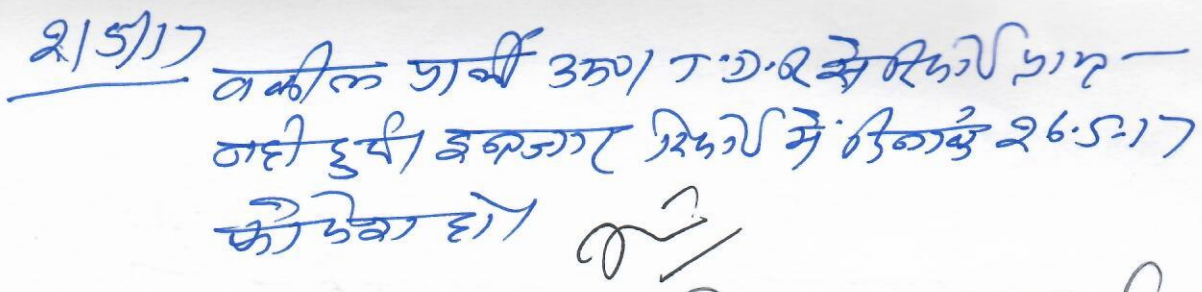 2/5/17
वकील प्रार्थी उप0। T.D.R से रिपोर्ट प्राप्त
नही हुई। इन्तजार रिपोर्ट में दिनांक 26.5.17
को पेश हो।